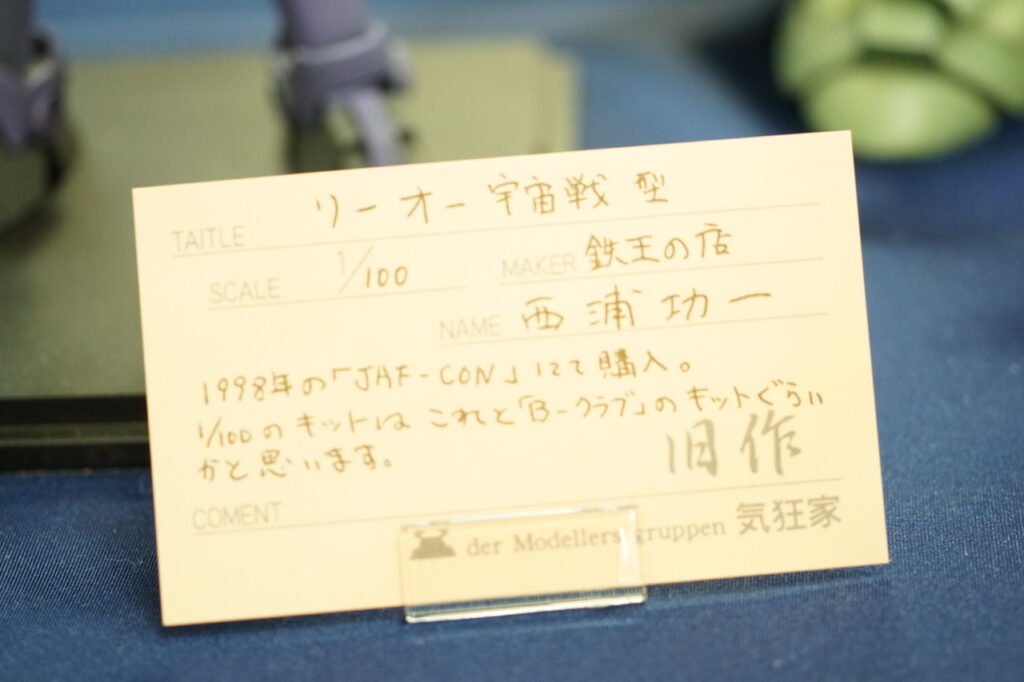 リーオー宇宙戦型
TAITLE
SCALE 1/100 MAKER 鉄王の店
NAME 西浦功一
1998年の「JAF-CON」にて購入。
1/100のキットはこれと「B-クラブ」のキットぐらい
かと思います。
旧作
COMENT
der Modellers gruppen 気狂家